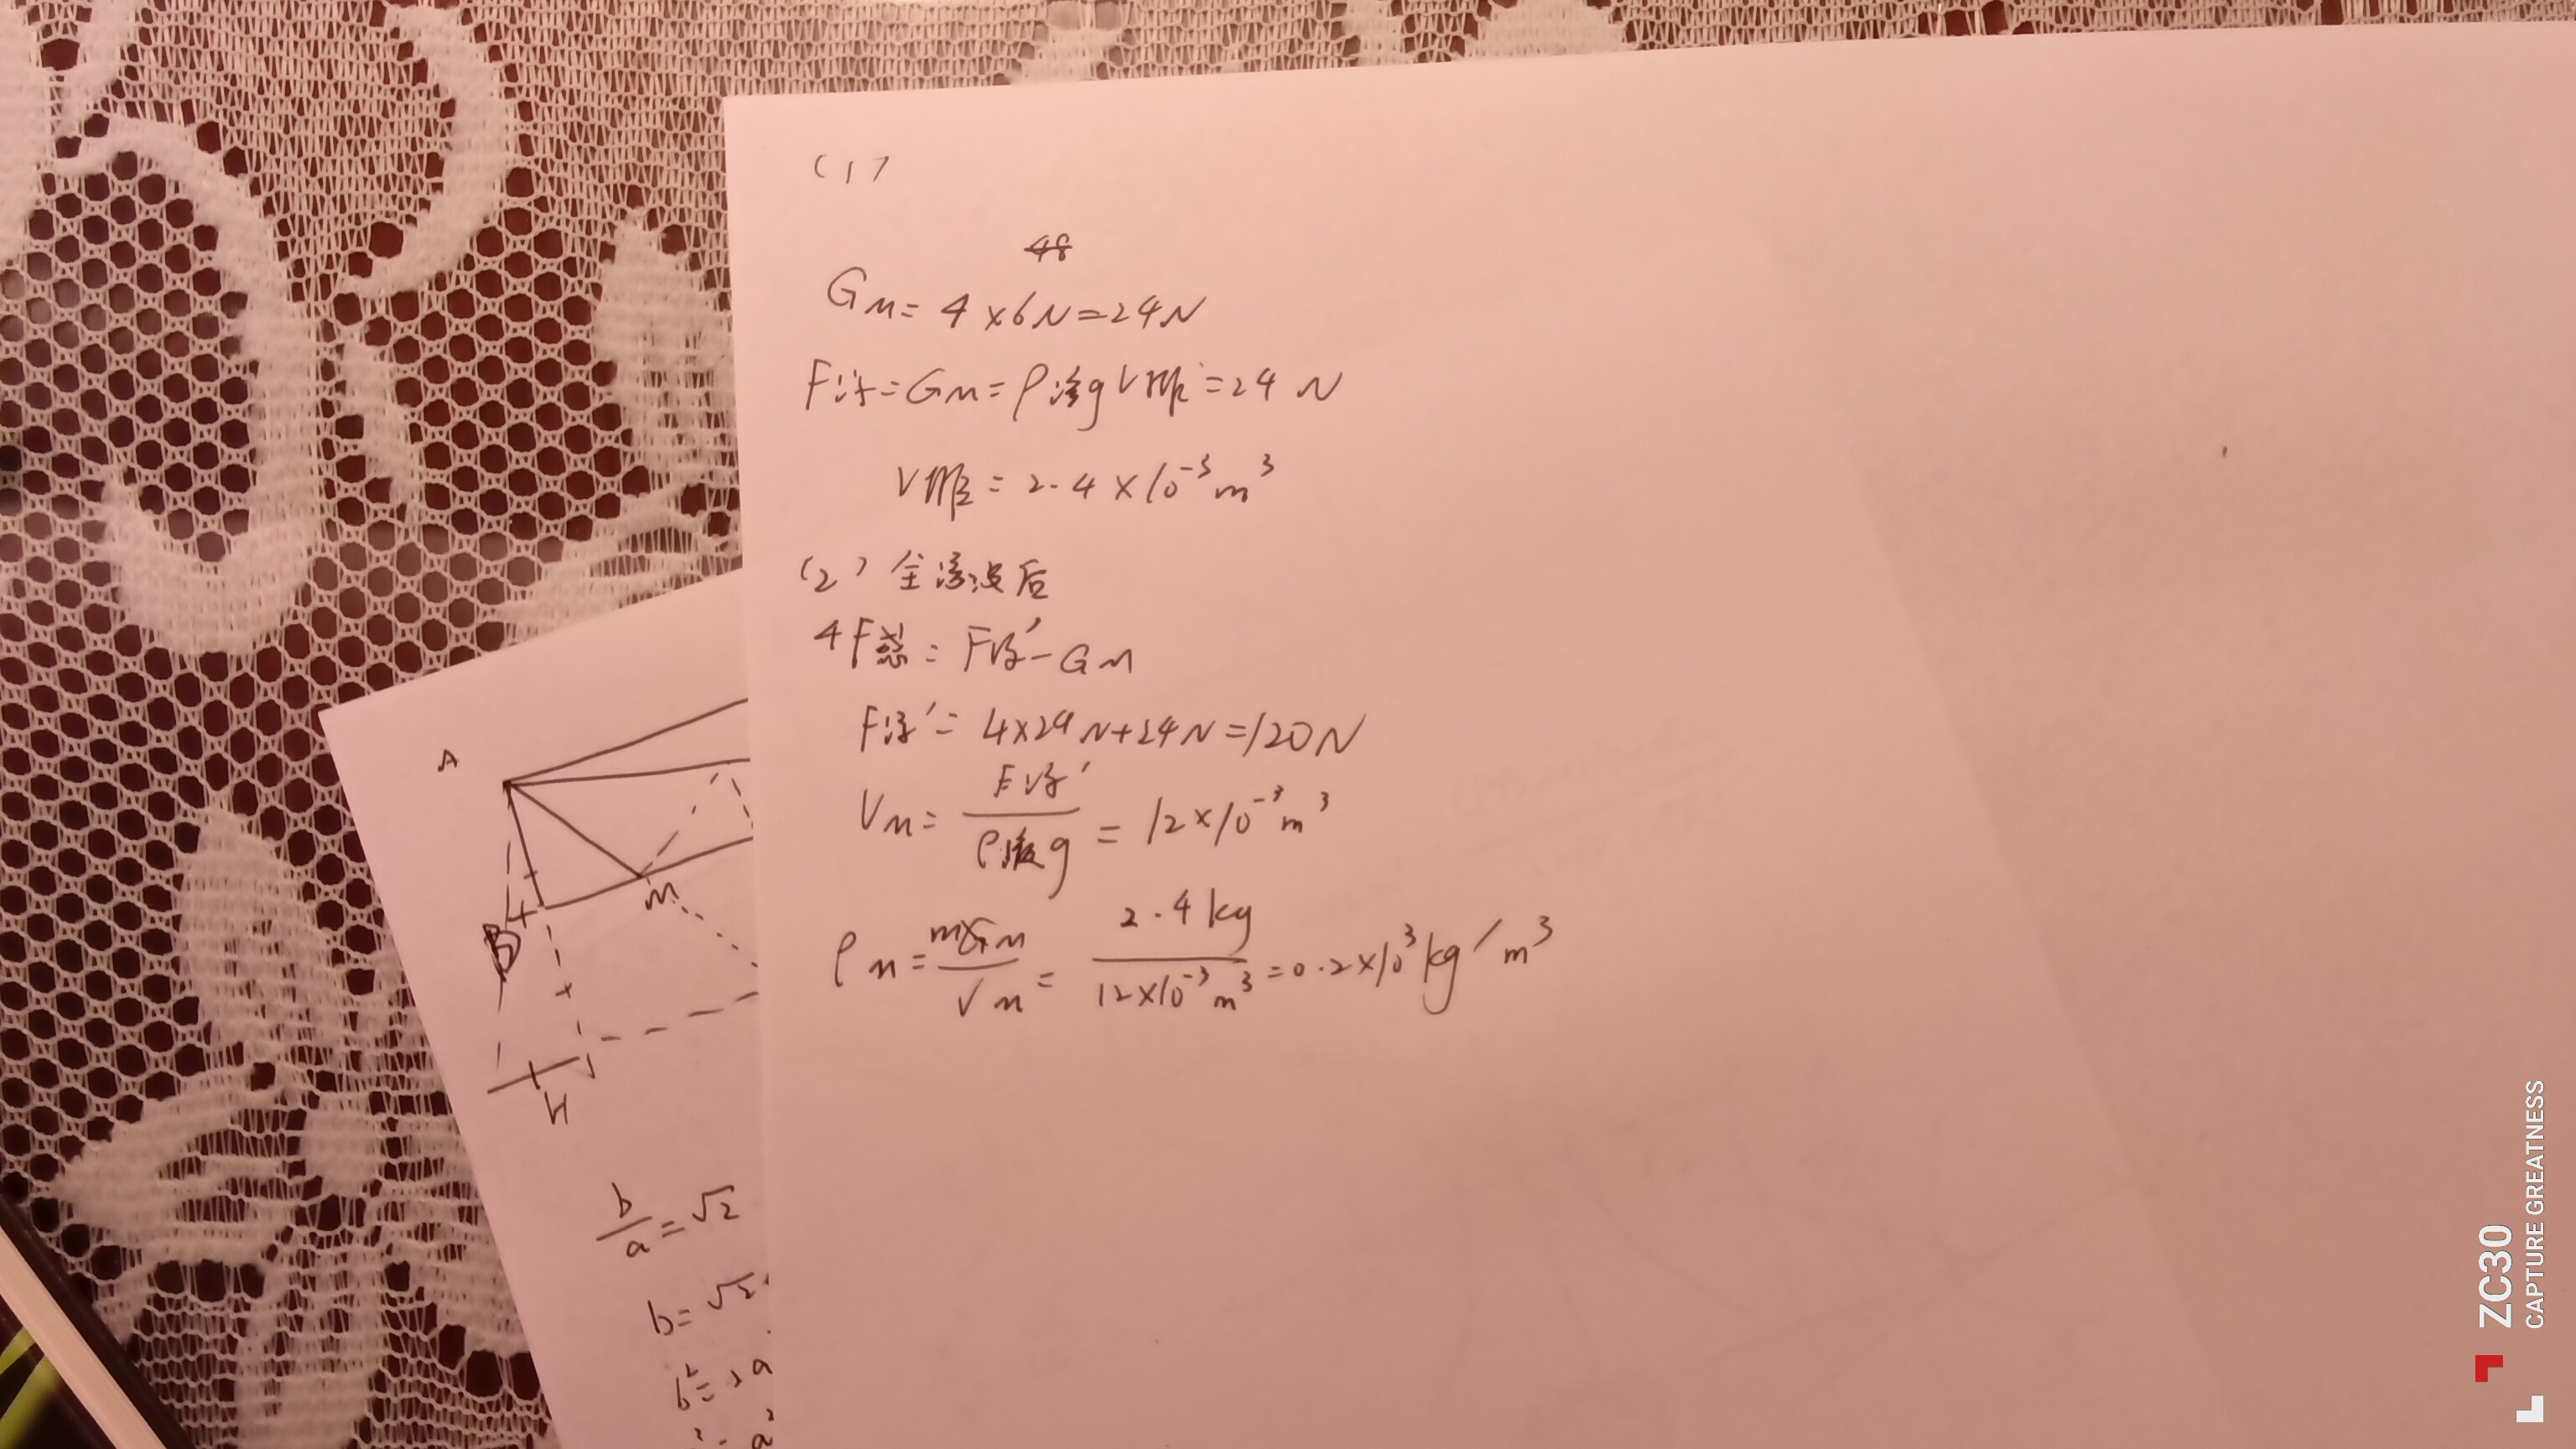 (1)
48
G_M = 4×6N=24N
F浮=G_M=ρ液gV排=24 N
V排 = 2.4×10⁻³m³
(2) 全浸没后
4F总 = F浮′-G_M
F浮′= 4×24N+24N=120N
V_M = F浮′/ρ液g = 12×10⁻³m³
ρ_M = m_M/V_M = 2.4kg/12×10⁻³m³ =0.2×10³kg/m³
A
M
B
H
b/a = √2
b= √2
b²=2a
a²
ZC30
CAPTURE GREATNESS